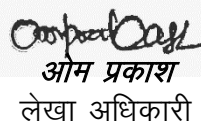 ओम प्रकाश
लेखा अधिकारी